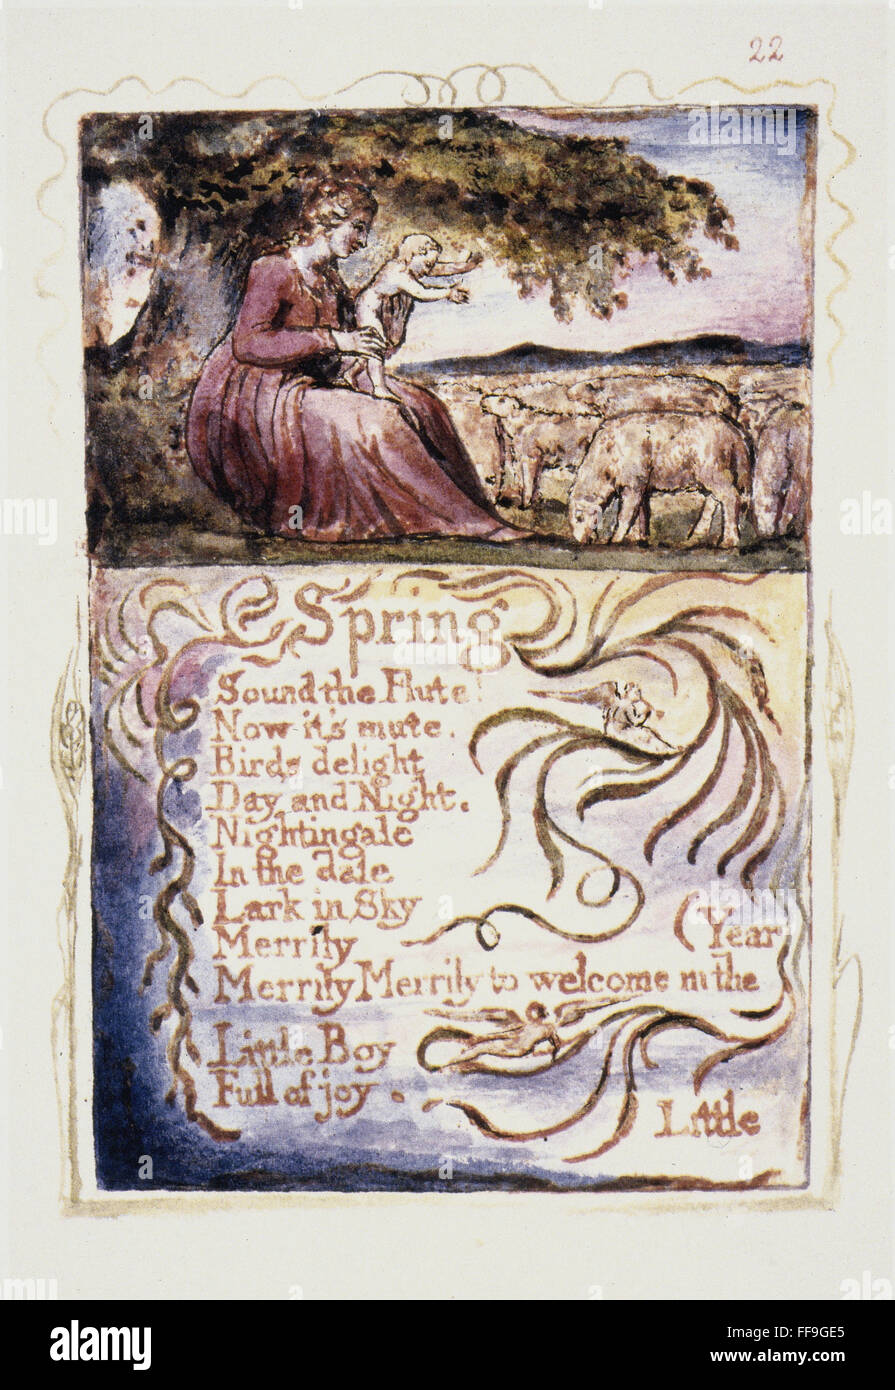 22
Spring
Sound the Flute!
Now it's mute.
Birds delight
Day and Night.
Nightingale
In the dale
Lark in Sky
Merrily
(Year
Merrily Merrily to welcome in the
Little Boy
Full of joy.
Little
alamy
Image ID: FF9GE5
www.alamy.com